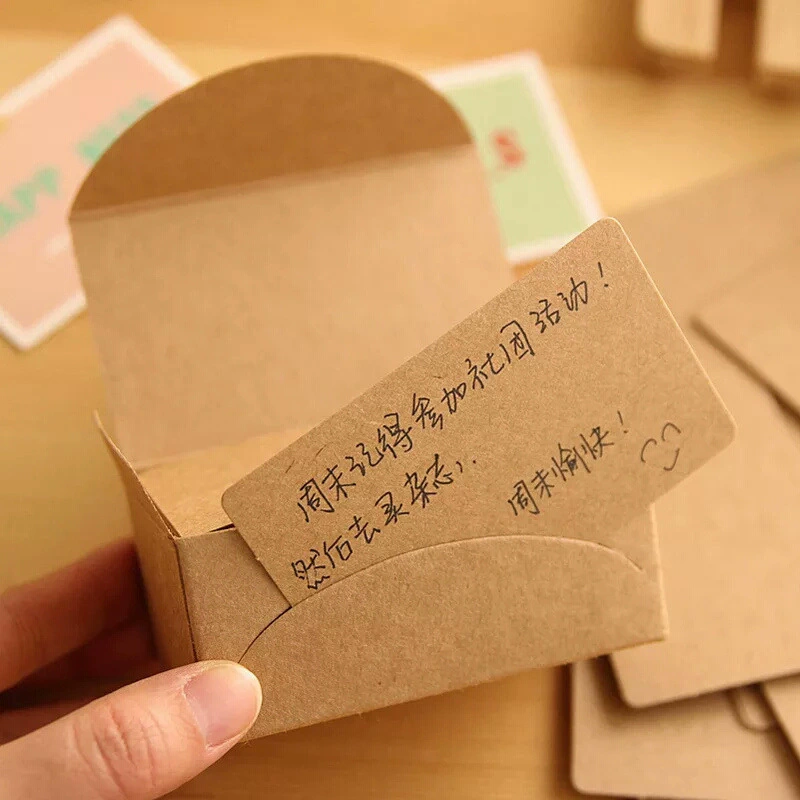 周末记得参加社团活动！
然后去买杂志、
周末愉快！